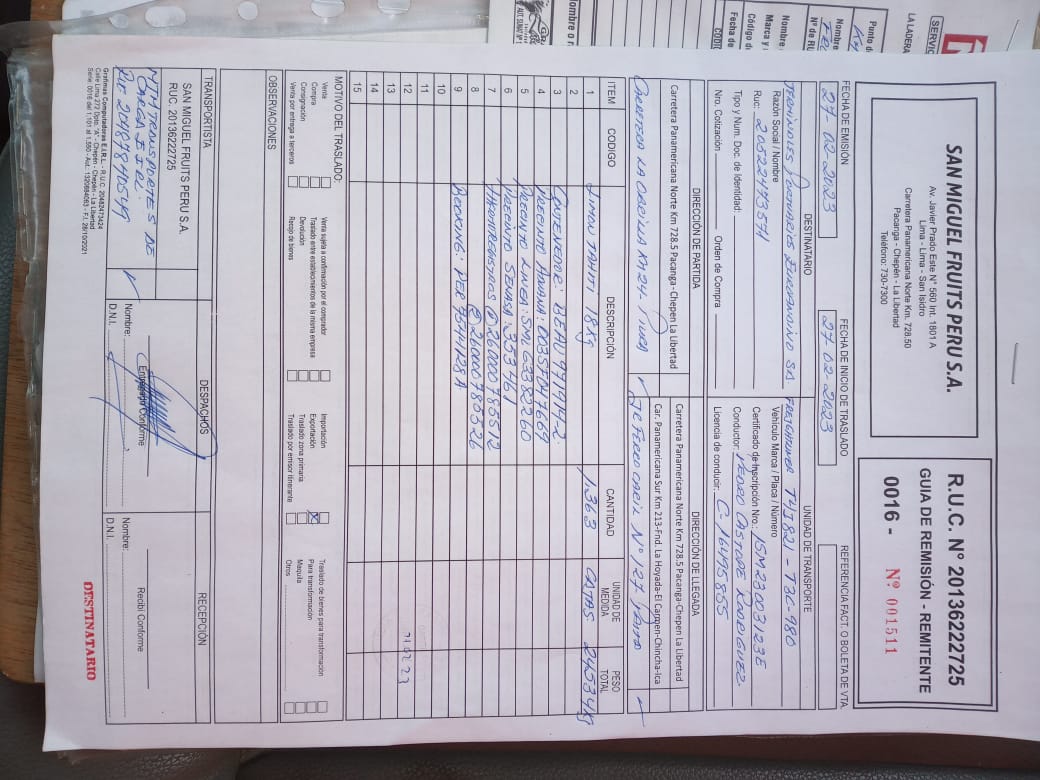 SAN MIGUEL FRUITS PERU S.A.
Av. Javier Prado Este N° 560 Int. 1801 A
Lima - Lima - San Isidro
Carretera Panamericana Norte Km. 728.50
Pacanga - Chepén - La Libertad
Teléfono: 730-7300
R.U.C. N° 20136222725
GUIA DE REMISIÓN - REMITENTE
0016 - Nº 001511
FECHA DE EMISIÓN
27-02-2023
FECHA DE INICIO DE TRASLADO
27-02-2023
REFERENCIA FACT. O BOLETA DE VTA.
DESTINATARIO
TERMINALES PORTUARIOS EUROANDINO SA.
Razón Social / Nombre
Ruc: 20522473571
Tipo y Num. Doc. de Identidad:
Nro. Cotización
Orden de Compra
UNIDAD DE TRANSPORTE
FREIGHTLINER T4I821 - TBC-980
Vehículo Marca / Placa / Número
Certificado de Inscripción Nro.: 15M23003123E
Conductor: PEDRO CASTOPE RODRIGUEZ
Licencia de conducir: C-16495855
DIRECCIÓN DE PARTIDA
Carretera Panamericana Norte Km 728.5 Pacanga-Chepen La Libertad
CARRETERA LA OBRILLA KM 24 PIURA
DIRECCIÓN DE LLEGADA
Carretera Panamericana Norte Km 728.5 Pacanga-Chepen La Libertad
Car. Panamericana Sur Km 213-Fnd. La Hoyada-El Carmen-Chincha-Ica
JR FERROCARIL N° 127 PAITA
ITEM CODIGO DESCRIPCIÓN CANTIDAD UNIDAD DE MEDIDA PESO TOTAL
1 LIMON TAHITI 18Kg 1,363 CAJAS 24534Kg
2
3 CONTENEDOR: BEAU 991914-2
4 PRECINTO ADUANA: 0035704766
5 PRECINTO LINEA: SML 6338260
6 PRECINTO SENASA: 333461
7 THERMOREGISTROS ① 260007855 12
8 ② 260007855 26
9 BOOKING: PER 9344128A
10
11
12
13
14
15
MOTIVO DEL TRASLADO:
Venta
Compra
Consignación
Venta por entrega a terceros
Venta sujeta a confirmación por el comprador
Traslado entre establecimientos de la misma empresa
Devolución
Recojo de bienes
Importación
Exportación X
Traslado zona primaria
Traslado por emisor itinerante
Traslado de bienes para transformación
Para transformación
Maquila
Otros
OBSERVACIONES
TRANSPORTISTA
SAN MIGUEL FRUITS PERU S.A.
RUC. 20136222725
MJM TRANSPORTES DE
CARGA EIRL
DESPACHOS
Entregué Conforme
Nombre:
D.N.I.
RECEPCIÓN
Recibí Conforme
Nombre:
D.N.I.
DESTINATARIO
Grafimas Computadoras E.I.R.L. - R.U.C. 20482473424